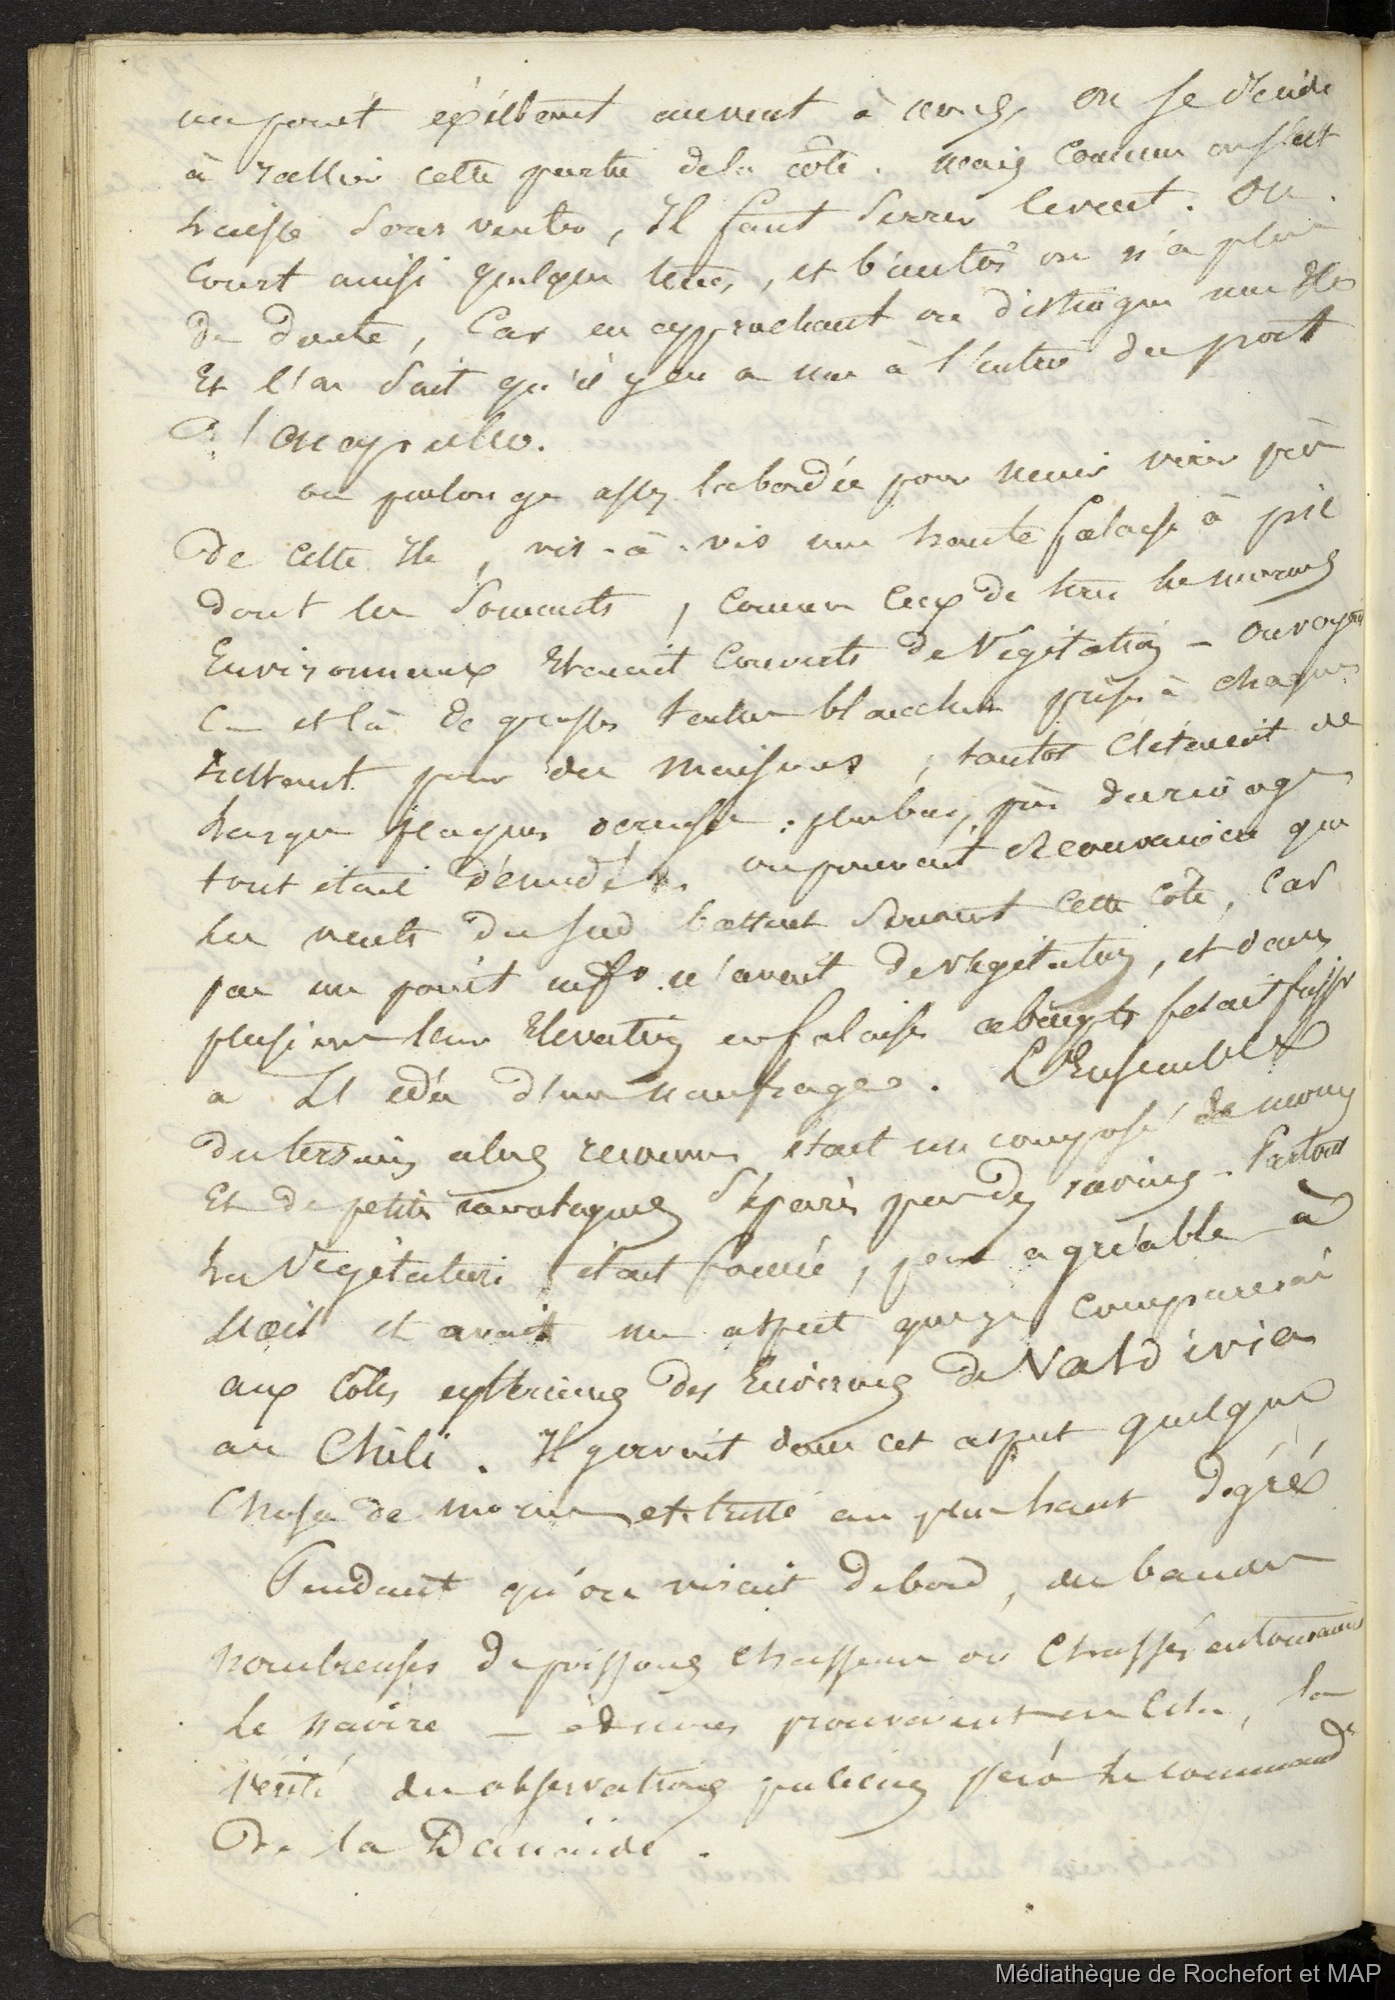 un point excellemment à on se décide
à rallier cette partie de la côte. mais comme on s'est
laissé sous venter, Il faut serrer levent. On
Court ainsi quelque tems, et b'entôt on n'a plus
de doute, Car en approchant on distingue une Ile
Et l'on sait qu'il y en a une à l'entrée du port
D'acapulco.
on prolonge assez la bordée pour venir virer près
De cette Ile, vis-à-vis une haute falaise à pic
dont les Sommets, Comme Ceux de tous les mornes
Environnaux Etaient Couverts de Végétation - on voyait
Ca et là de grosses taches blanches prises à chaque
instant pour des maisons, tantôt c'étaient de
larges plaques : plus bas, près du rivage
tout était dénudé. on pouvait reconnaitre que
les vents du sud battent souvent cette côte, Car
pas un point n'avait de végétation, et dans
plusieurs leur Elevation en falaises
a L'idée d'un naufrage. L'Ensemble
du terrain alors reconnu était un composé de mornes
Et de petites montagnes séparés par des ravins - Partout
La Végétation était foncée, peu agréable à
L'œil et avait un aspect que je comparerai
aux Côtes extérieures des Environs de Valdivia
au Chili. Il y avait dans cet aspect quelque
Chose de morne et triste au plus haut dégré
Pendant qu'on virait debord, des bandes
nombreuses de poissons chasseurs ou Chassés entouraient
Le navire - prouvaient en Cela, la
vérité des observations publiées par le command.t
De la Danaïde.
Médiathèque de Rochefort et MAP